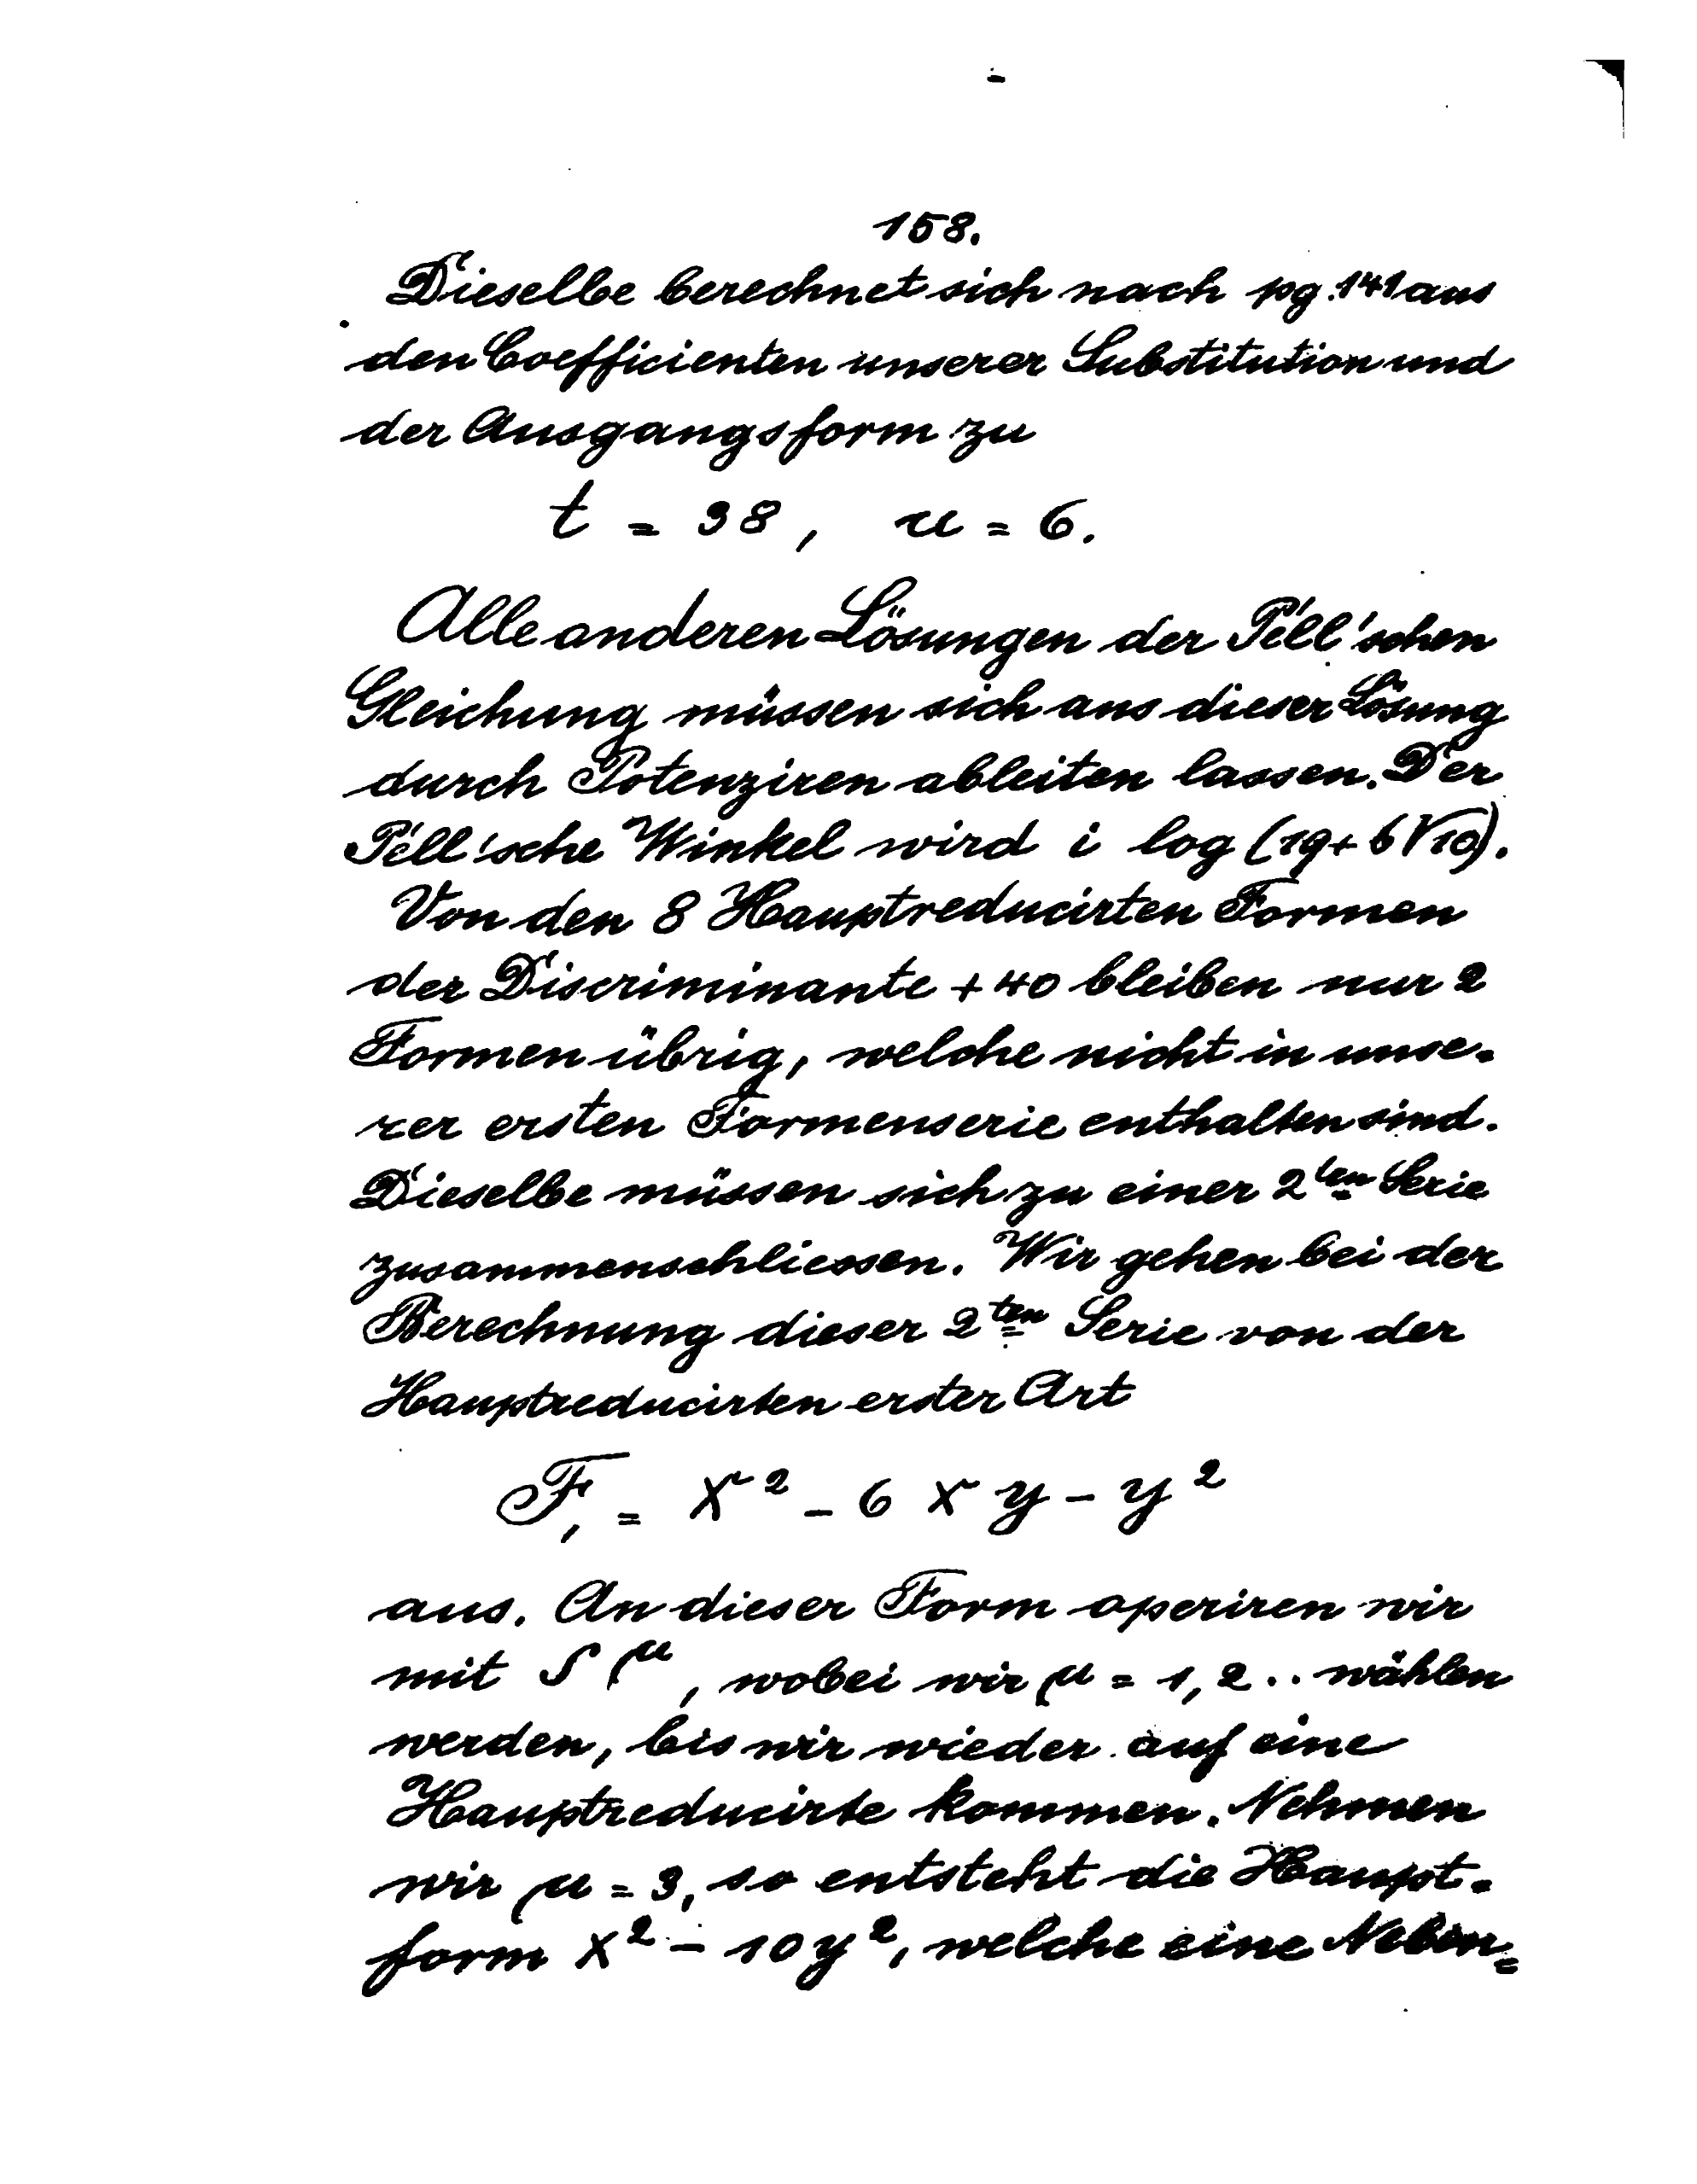 158.
Dieselbe berechnet sich nach pg. 141 aus
den Coefficienten unserer Substitution und
der Ausgangsform zu
t = 38, u = 6.
Alle anderen Lösungen der Pell'schen
Gleichung müssen sich aus dieser Lösung
durch Potenziren ableiten lassen. Der
Pell'sche Winkel wird i log (19 + 6√10).
Von den 8 Hauptreducirten Formen
der Discriminante + 40 bleiben nur 2
Formen übrig, welche nicht in unse-
rer ersten Formenserie enthalten sind.
Dieselbe müssen sich zu einer 2ten Serie
zusammenschliessen. Wir gehen bei der
Berechnung dieser 2ten Serie von der
Hauptreducirten erster Art
F₁ = x² - 6 x y - y²
aus. An dieser Form operiren wir
mit S^μ, wobei wir μ = 1, 2 .. wählen
werden, bis wir wieder auf eine
Hauptreducirte kommen. Nehmen
wir μ = 3, so entsteht die Haupt-
form x² - 10 y², welche eine Neben=